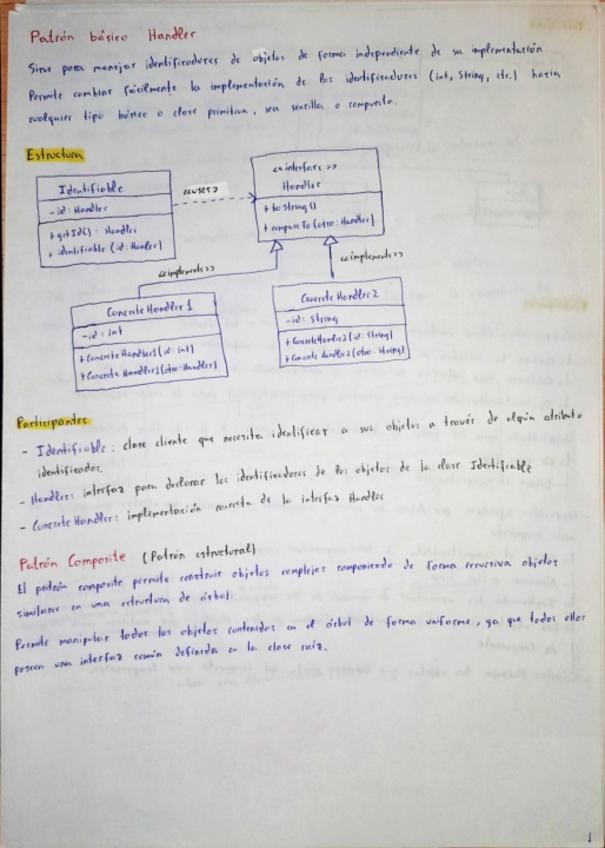 Patrón básico Handler
Sirve para manejar identificadores de objetos de forma independiente de su implementación
Permite cambiar fácilmente la implementación de los identificadores (int, String, etc.) hacia
cualquier tipo básico o clase primitiva, sea sencilla o compuesta.
Estructura
Identifiable
- id: Handler
+ getId(): Handler
+ identifiable (id: Handler)
<<uses>>
<<interface>>
Handler
+ toString()
+ compareTo(otro: Handler)
<<implements>>
<<implements>>
ConcreteHandler1
- id: int
+ ConcreteHandler1(id: int)
+ ConcreteHandler1(otro: Handler)
ConcreteHandler2
- id: String
+ ConcreteHandler2(id: String)
+ ConcreteHandler2(otro: String)
Participantes
- Identifiable: clase cliente que necesita identificar a sus objetos a través de algún atributo
identificador.
- Handler: interfaz para declarar los identificadores de los objetos de la clase Identifiable
- Concrete Handler: implementación concreta de la interfaz Handler
Patrón Composite (Patrón estructural)
El patrón composite permite construir objetos complejos componiendo de forma recursiva objetos
similares en una estructura de árbol.
Permite manipular todos los objetos contenidos en el árbol de forma uniforme, ya que todos ellos
poseen una interfaz común definida en la clase raíz.
1